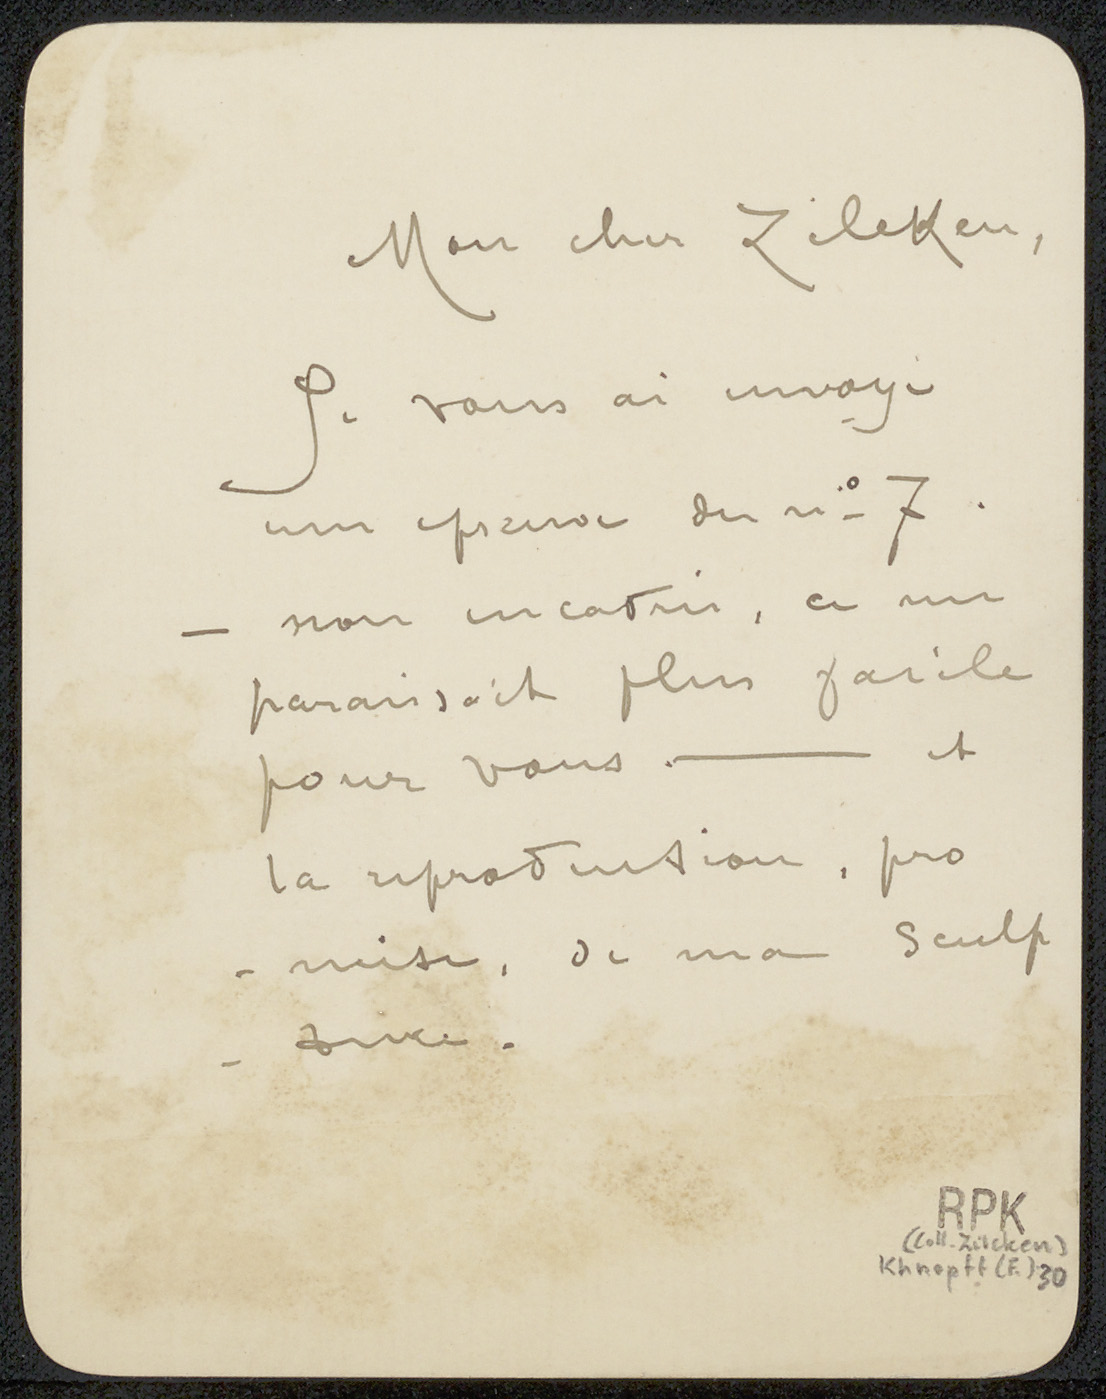 Mon cher Zilcken,
Je vous ai envoyé
une epreuve du nº 7.
— non encadrée, ce me
paraissait plus facile
pour vous. — et
la reproduction, pro
- mise, de ma sculp
- ture.
RPK
(Coll. Zilcken)
Khnopff (F.) 30